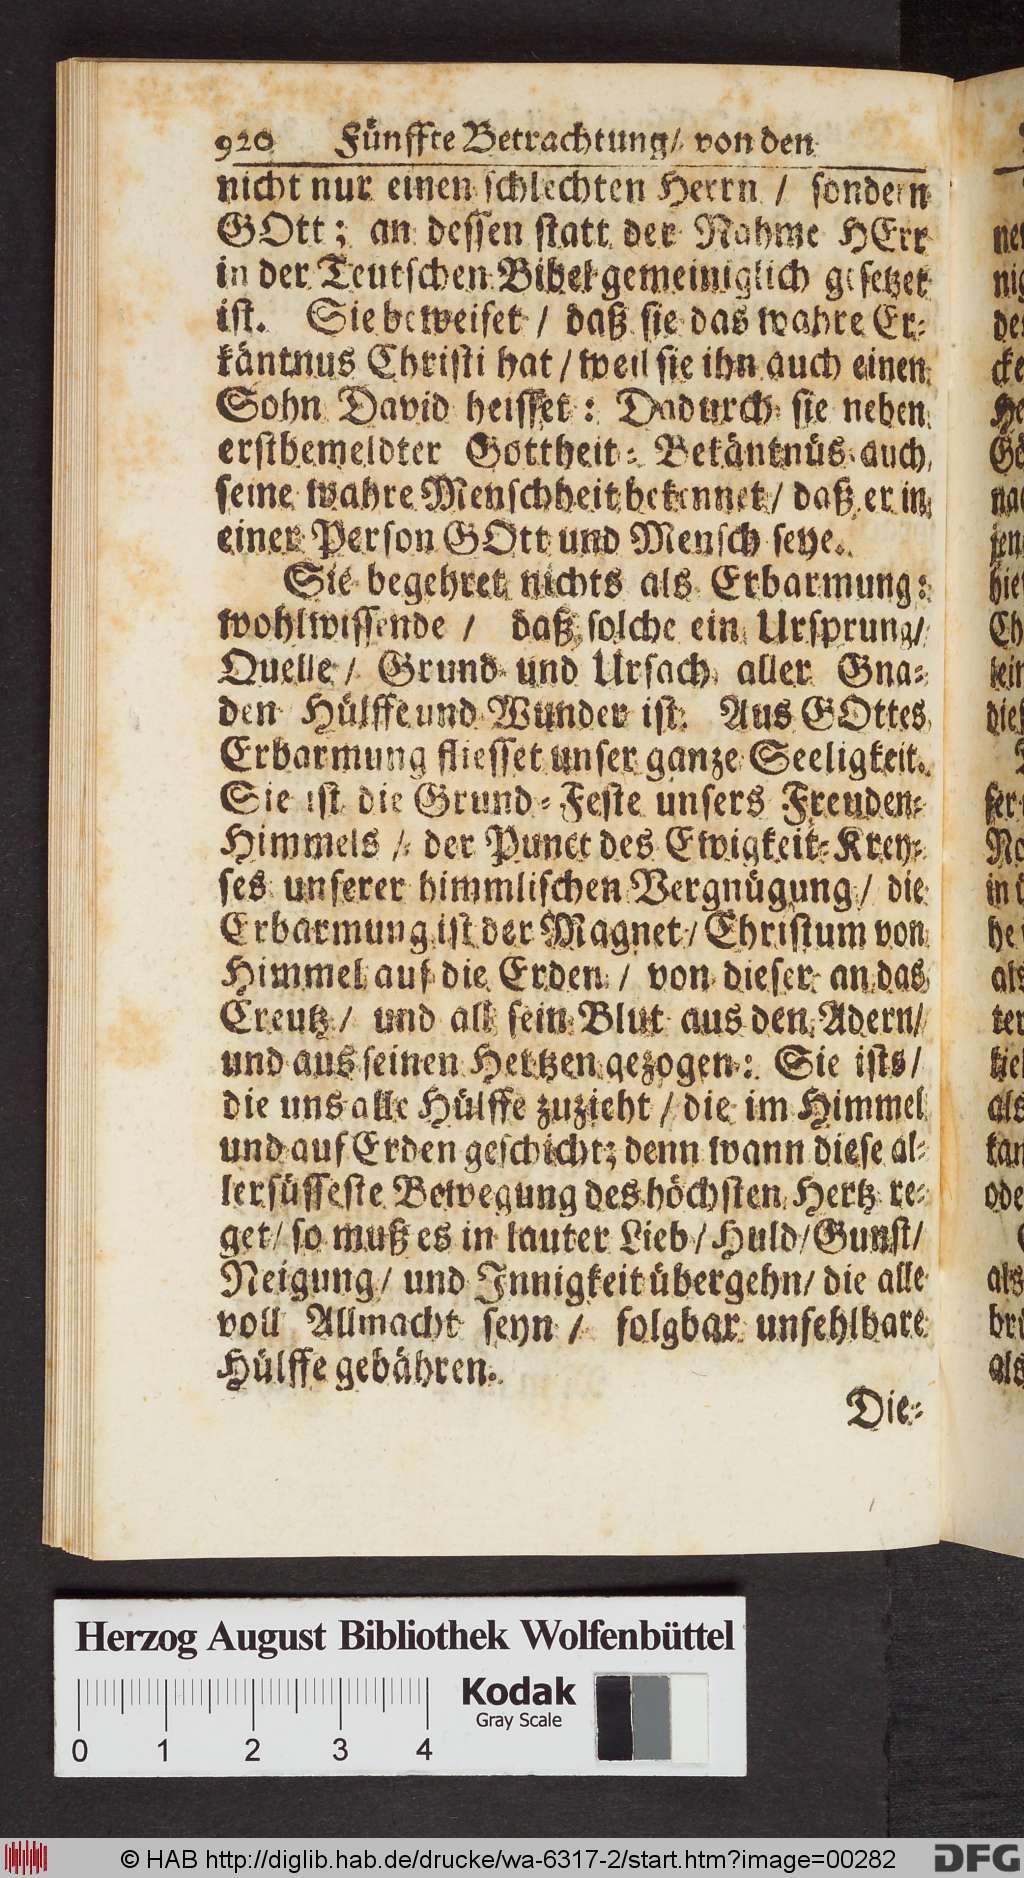 920 Fünffte Betrachtung/ von den
nicht nur einen schlechten Herrn / sondern
GOtt; an dessen statt der Nahme HErr
in der Teutschen Bibel gemeiniglich gesetzet
ist. Sie beweiset / daß sie das wahre Er-
käntnus Christi hat / weil sie ihn auch einen
Sohn David heisset: Dadurch sie neben
erstbemeldter Gottheit-Bekäntnüs auch
seine wahre Menschheit bekennet / daß er in
einer Person GOtt und Mensch seye.
Sie begehret nichts als Erbarmung:
wohlwissende / daß solche ein Ursprung/
Quelle / Grund und Ursach aller Gna-
den Hülffe und Wunder ist. Aus GOttes
Erbarmung fliesset unser ganze Seeligkeit.
Sie ist die Grund-Feste unsers Freuden-
Himmels / der Punct des Ewigkeit-Krey-
ses unserer himmlischen Vergnügung / die
Erbarmung ist der Magnet / Christum von
Himmel auf die Erden / von dieser an das
Creutz / und all sein Blut aus den Adern/
und aus seinen Hertzen gezogen: Sie ists /
die uns alle Hülffe zuzieht / die im Himmel
und auf Erden geschicht; denn wann diese al-
lersüsseste Bewegung des höchsten Hertz re-
get / so muß es in lauter Lieb / Huld / Gunst /
Neigung / und Innigkeit übergehn / die alle
voll Allmacht seyn / folgbar unfehlbare
Hülffe gebähren.
Die-
Herzog August Bibliothek Wolfenbüttel
0 1 2 3 4
Kodak
Gray Scale
© HAB http://diglib.hab.de/drucke/wa-6317-2/start.htm?image=00282
DFG